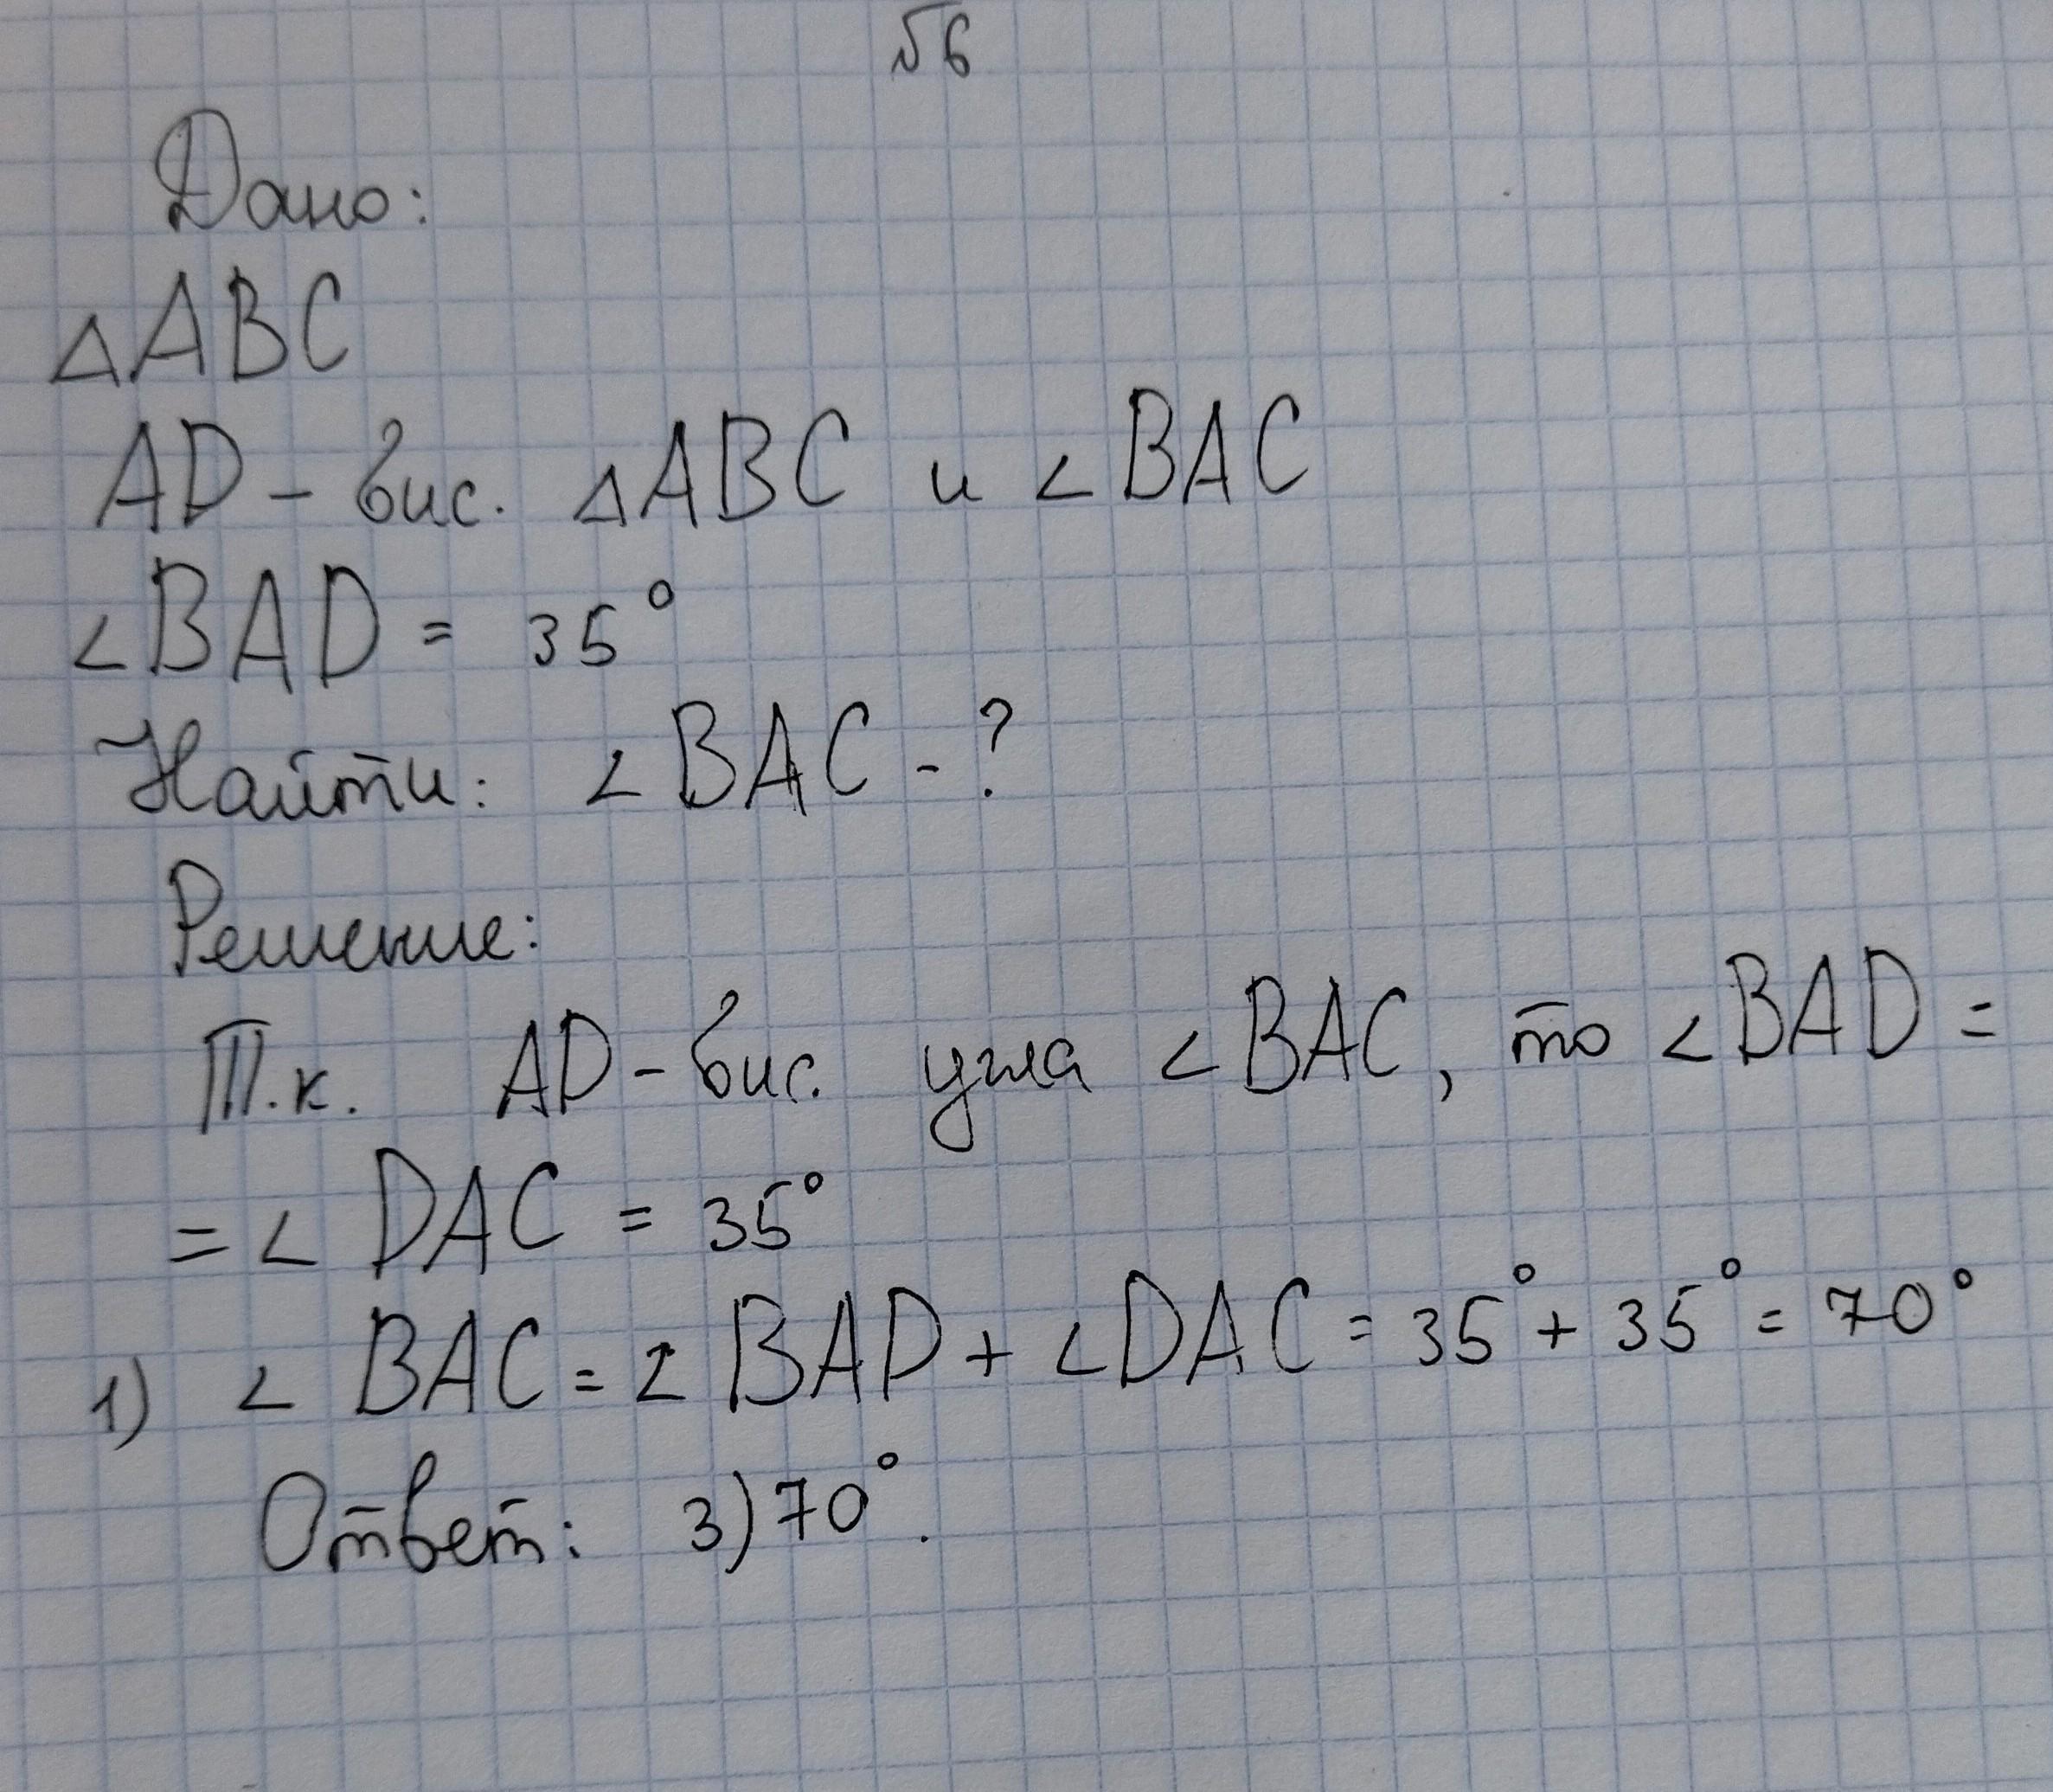 №6
Дано:
△ABC
AD - бис. △ABC и ∠BAC
∠BAD = 35°
Найти: ∠BAC - ?
Решение:
Т.к. AD - бис. угла ∠BAC, то ∠BAD =
= ∠DAC = 35°
1) ∠BAC = ∠BAD + ∠DAC = 35° + 35° = 70°
Ответ: 3) 70°.